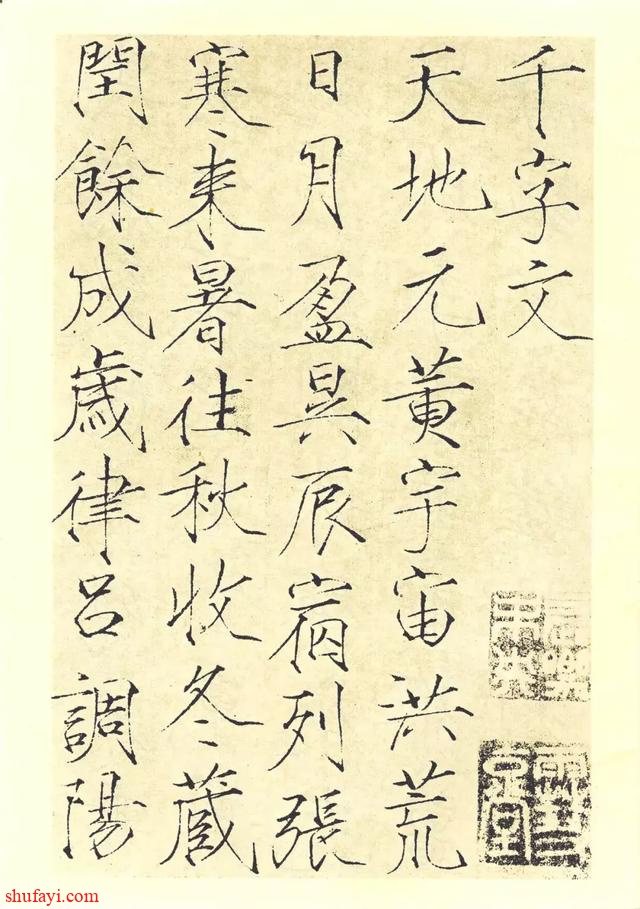 千字文
天地元黃宇宙洪荒
日月盈昃辰宿列張
寒来暑往秋收冬蔵
閏餘成歳律呂調陽
shufayi.com